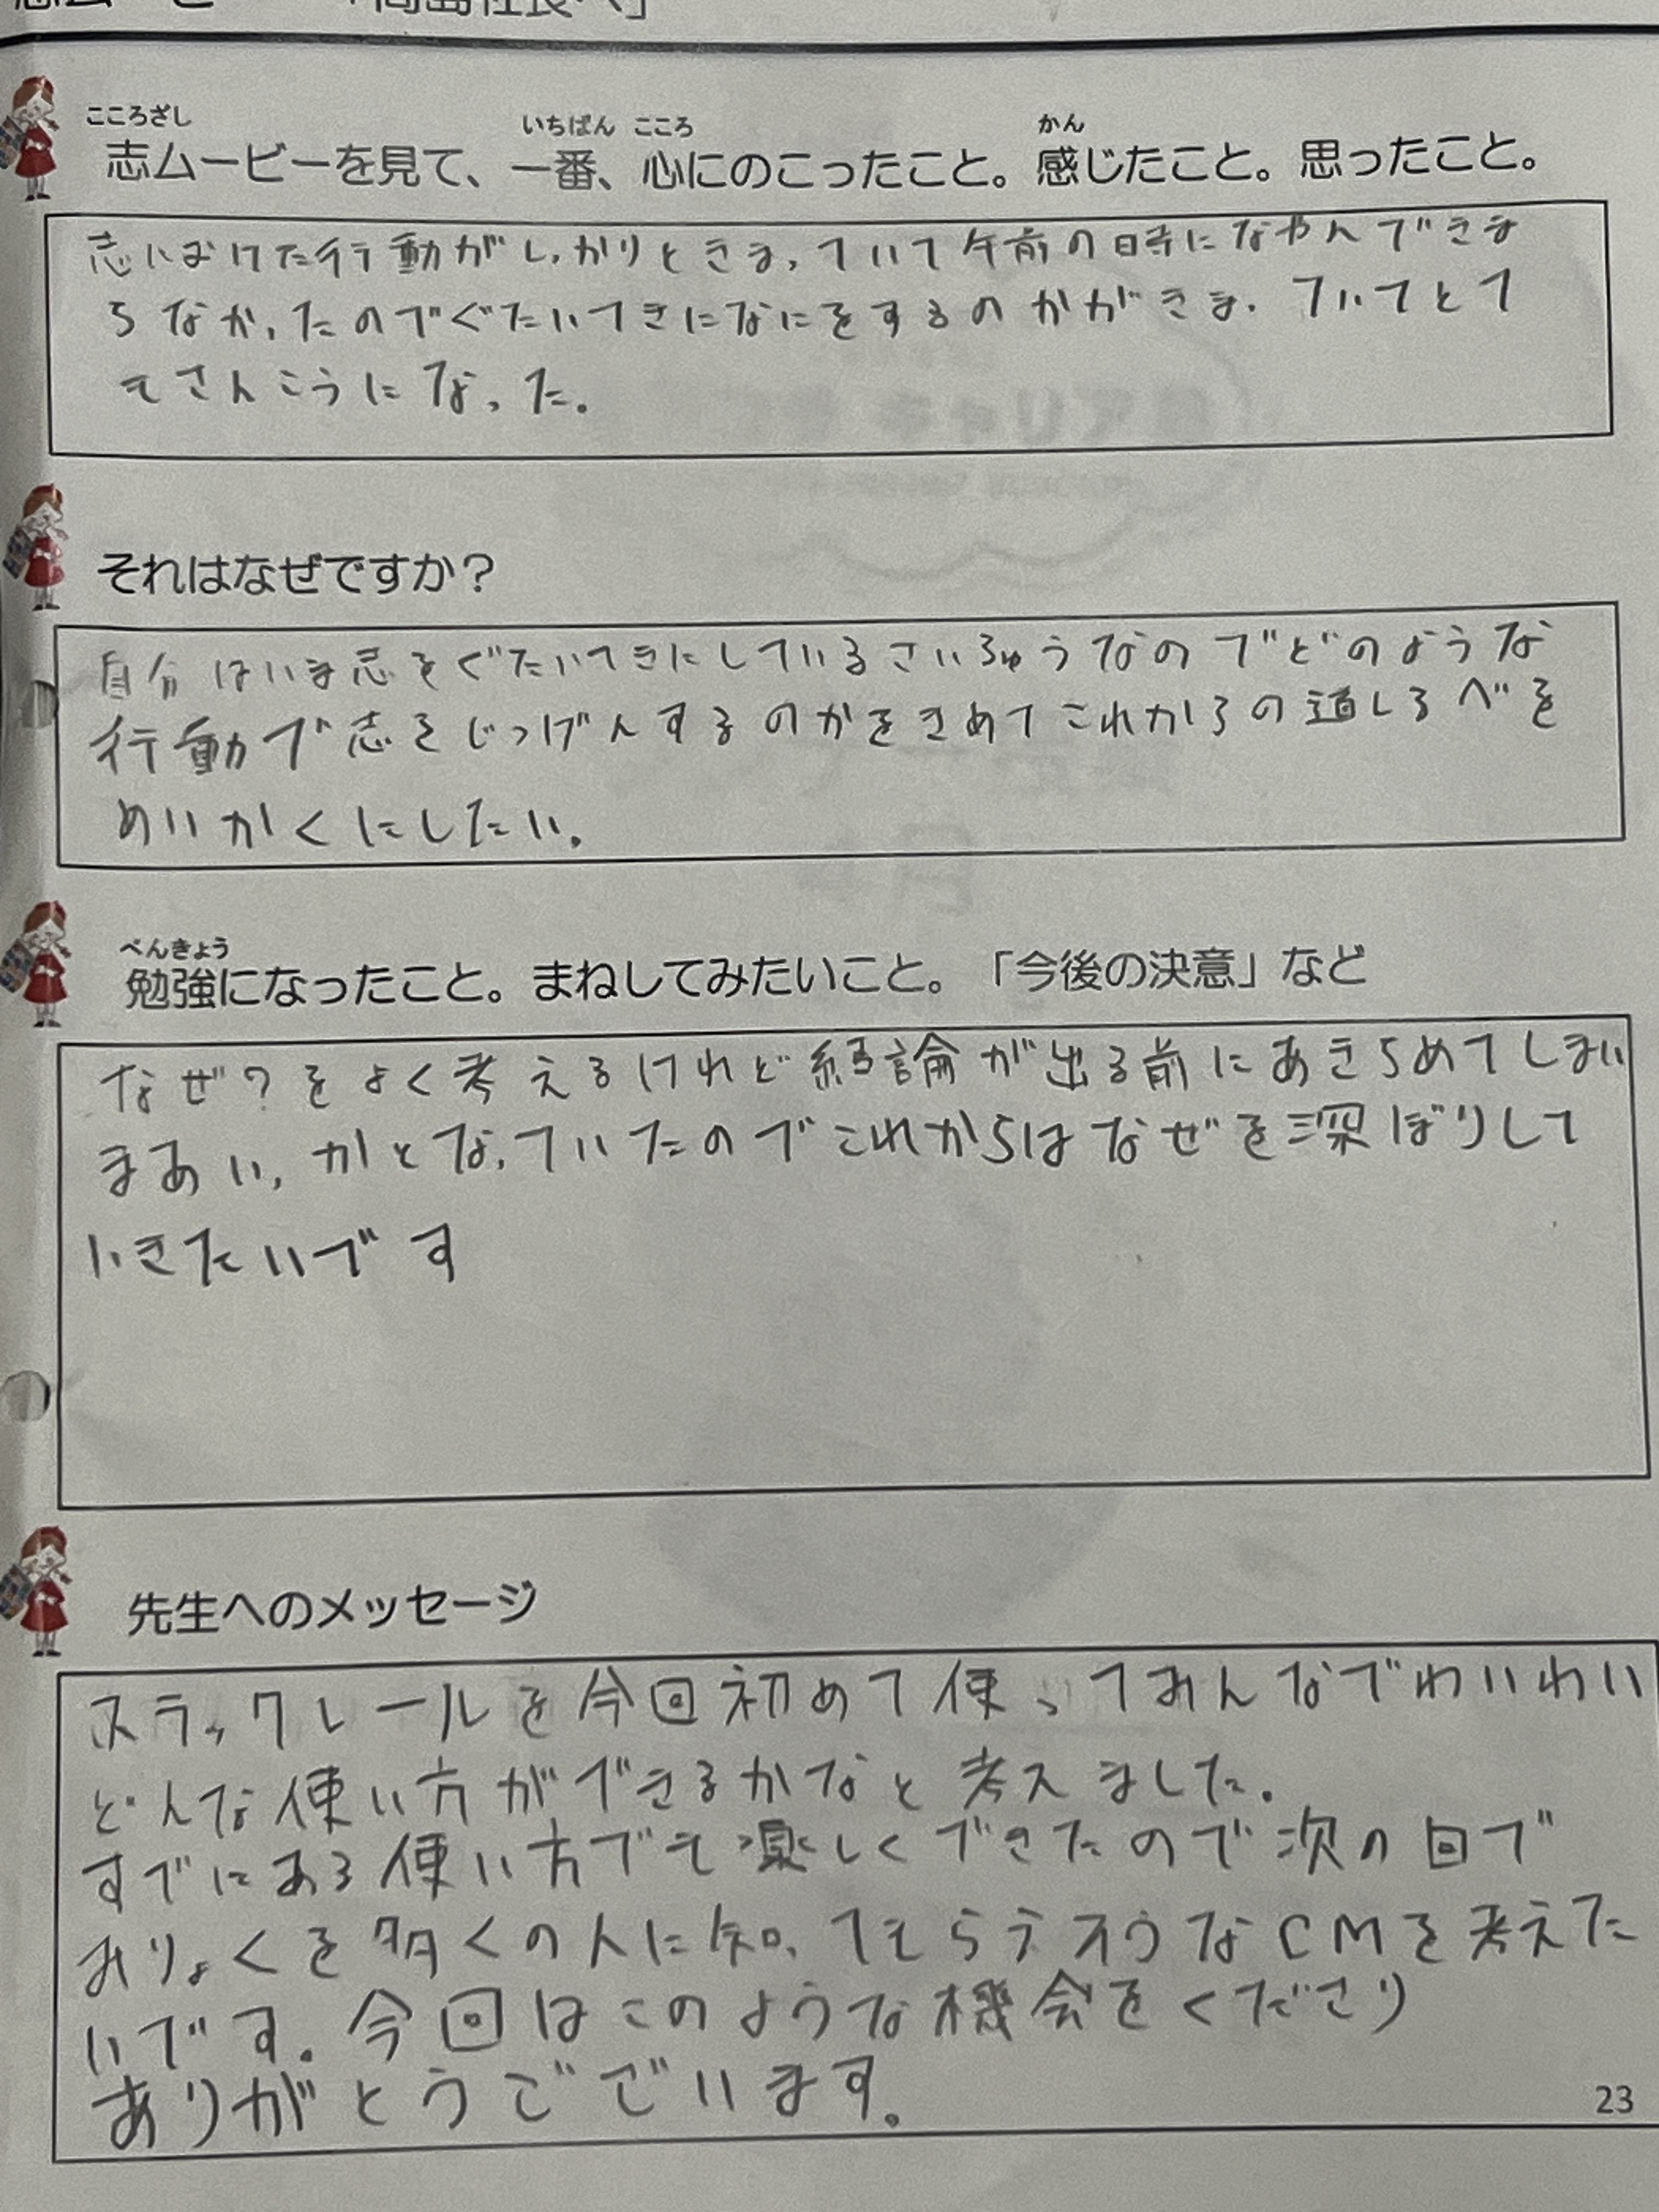 こころざし いちばん こころ かん
志ムービーを見て、一番、心にのこったこと。感じたこと。思ったこと。
志にむけた行動がしっかりときまっていて午前の時になやんできま
らなかったのでぐたいてきになにをするのかがきまっていてとて
もさんこうになった。
それはなぜですか？
自分はいま志をぐたいてきにしているさいちゅうなのでどのような
行動で志をじつげんするのかをきめてこれからの道しるべを
めいかくにしたい。
べんきょう
勉強になったこと。まねしてみたいこと。「今後の決意」など
なぜ？をよく考えるけれど結論が出る前にあきらめてしまい
まあいっかとなっていたのでこれからはなぜを深ぼりして
いきたいです
先生へのメッセージ
スラックレールを今回初めて使ってみんなでわいわい
どんな使い方ができるかなと考えました。
すでにある使い方でも楽しくできたので次の回で
みりょくを多くの人に知ってもらうようなCMを考えた
いです。今回はこのような機会をくださり
ありがとうございます。
23